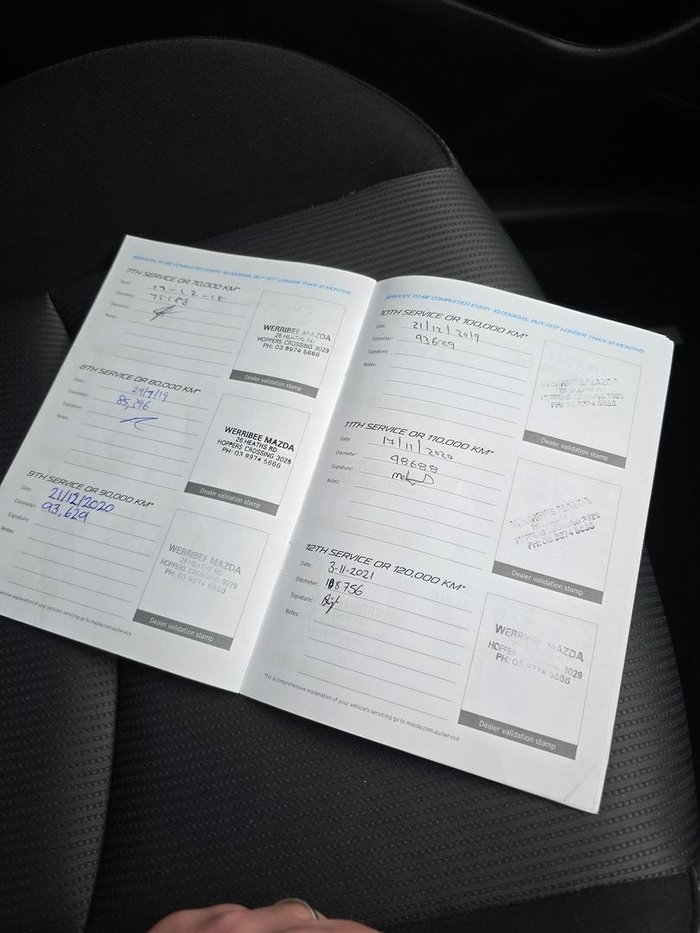 SERVICES TO BE COMPLETED EVERY 10,000KMS, BUT NOT LONGER THAN 12 MONTHS
7TH SERVICE OR 70,000 KM*
Date:
Odometer:
Signature:
Notes:
WERRIBEE MAZDA
26 HEATHS RD
HOPPERS CROSSING 3029
PH: 03 8974 5666
Dealer validation stamp
8TH SERVICE OR 80,000 KM*
Date: 29/7/19
Odometer: 85,296
Signature:
Notes:
WERRIBEE MAZDA
26 HEATHS RD
HOPPERS CROSSING 3029
PH: 03 8974 5666
Dealer validation stamp
9TH SERVICE OR 90,000 KM*
Date: 21/12/2020
Odometer: 93,629
Signature:
Notes:
WERRIBEE MAZDA
26 HEATHS RD
HOPPERS CROSSING 3029
PH: 03 8974 5666
Dealer validation stamp
explanation of your vehicle's servicing go to mazda.com.au/service
SERVICES TO BE COMPLETED EVERY 10,000KMS, BUT NOT LONGER THAN 12 MONTHS
10TH SERVICE OR 100,000 KM*
Date: 21/12/2019
Odometer: 93629
Signature:
Notes:
WERRIBEE MAZDA
PH: 03 8974 5666
Dealer validation stamp
11TH SERVICE OR 110,000 KM*
Date: 17/11/2020
Odometer: 98688
Signature:
Notes:
PH: 03 8974 5666
Dealer validation stamp
12TH SERVICE OR 120,000 KM*
Date: 3-11-2021
Odometer: 108756
Signature:
Notes:
WERRIBEE MAZDA
3029
PH: 03 8974 5666
Dealer validation stamp
*for a comprehensive explanation of your vehicle's servicing go to mazda.com.au/service